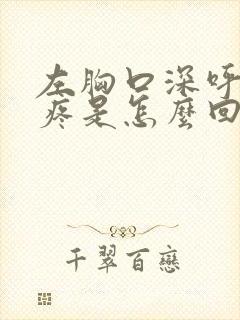 左胸口深呼
疼是怎麼回
千翠百戀